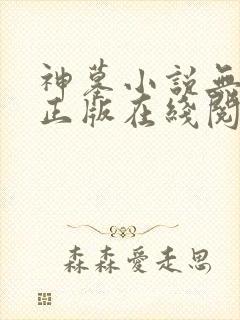 神墓小说無
正版在綫閱
森森愛走思